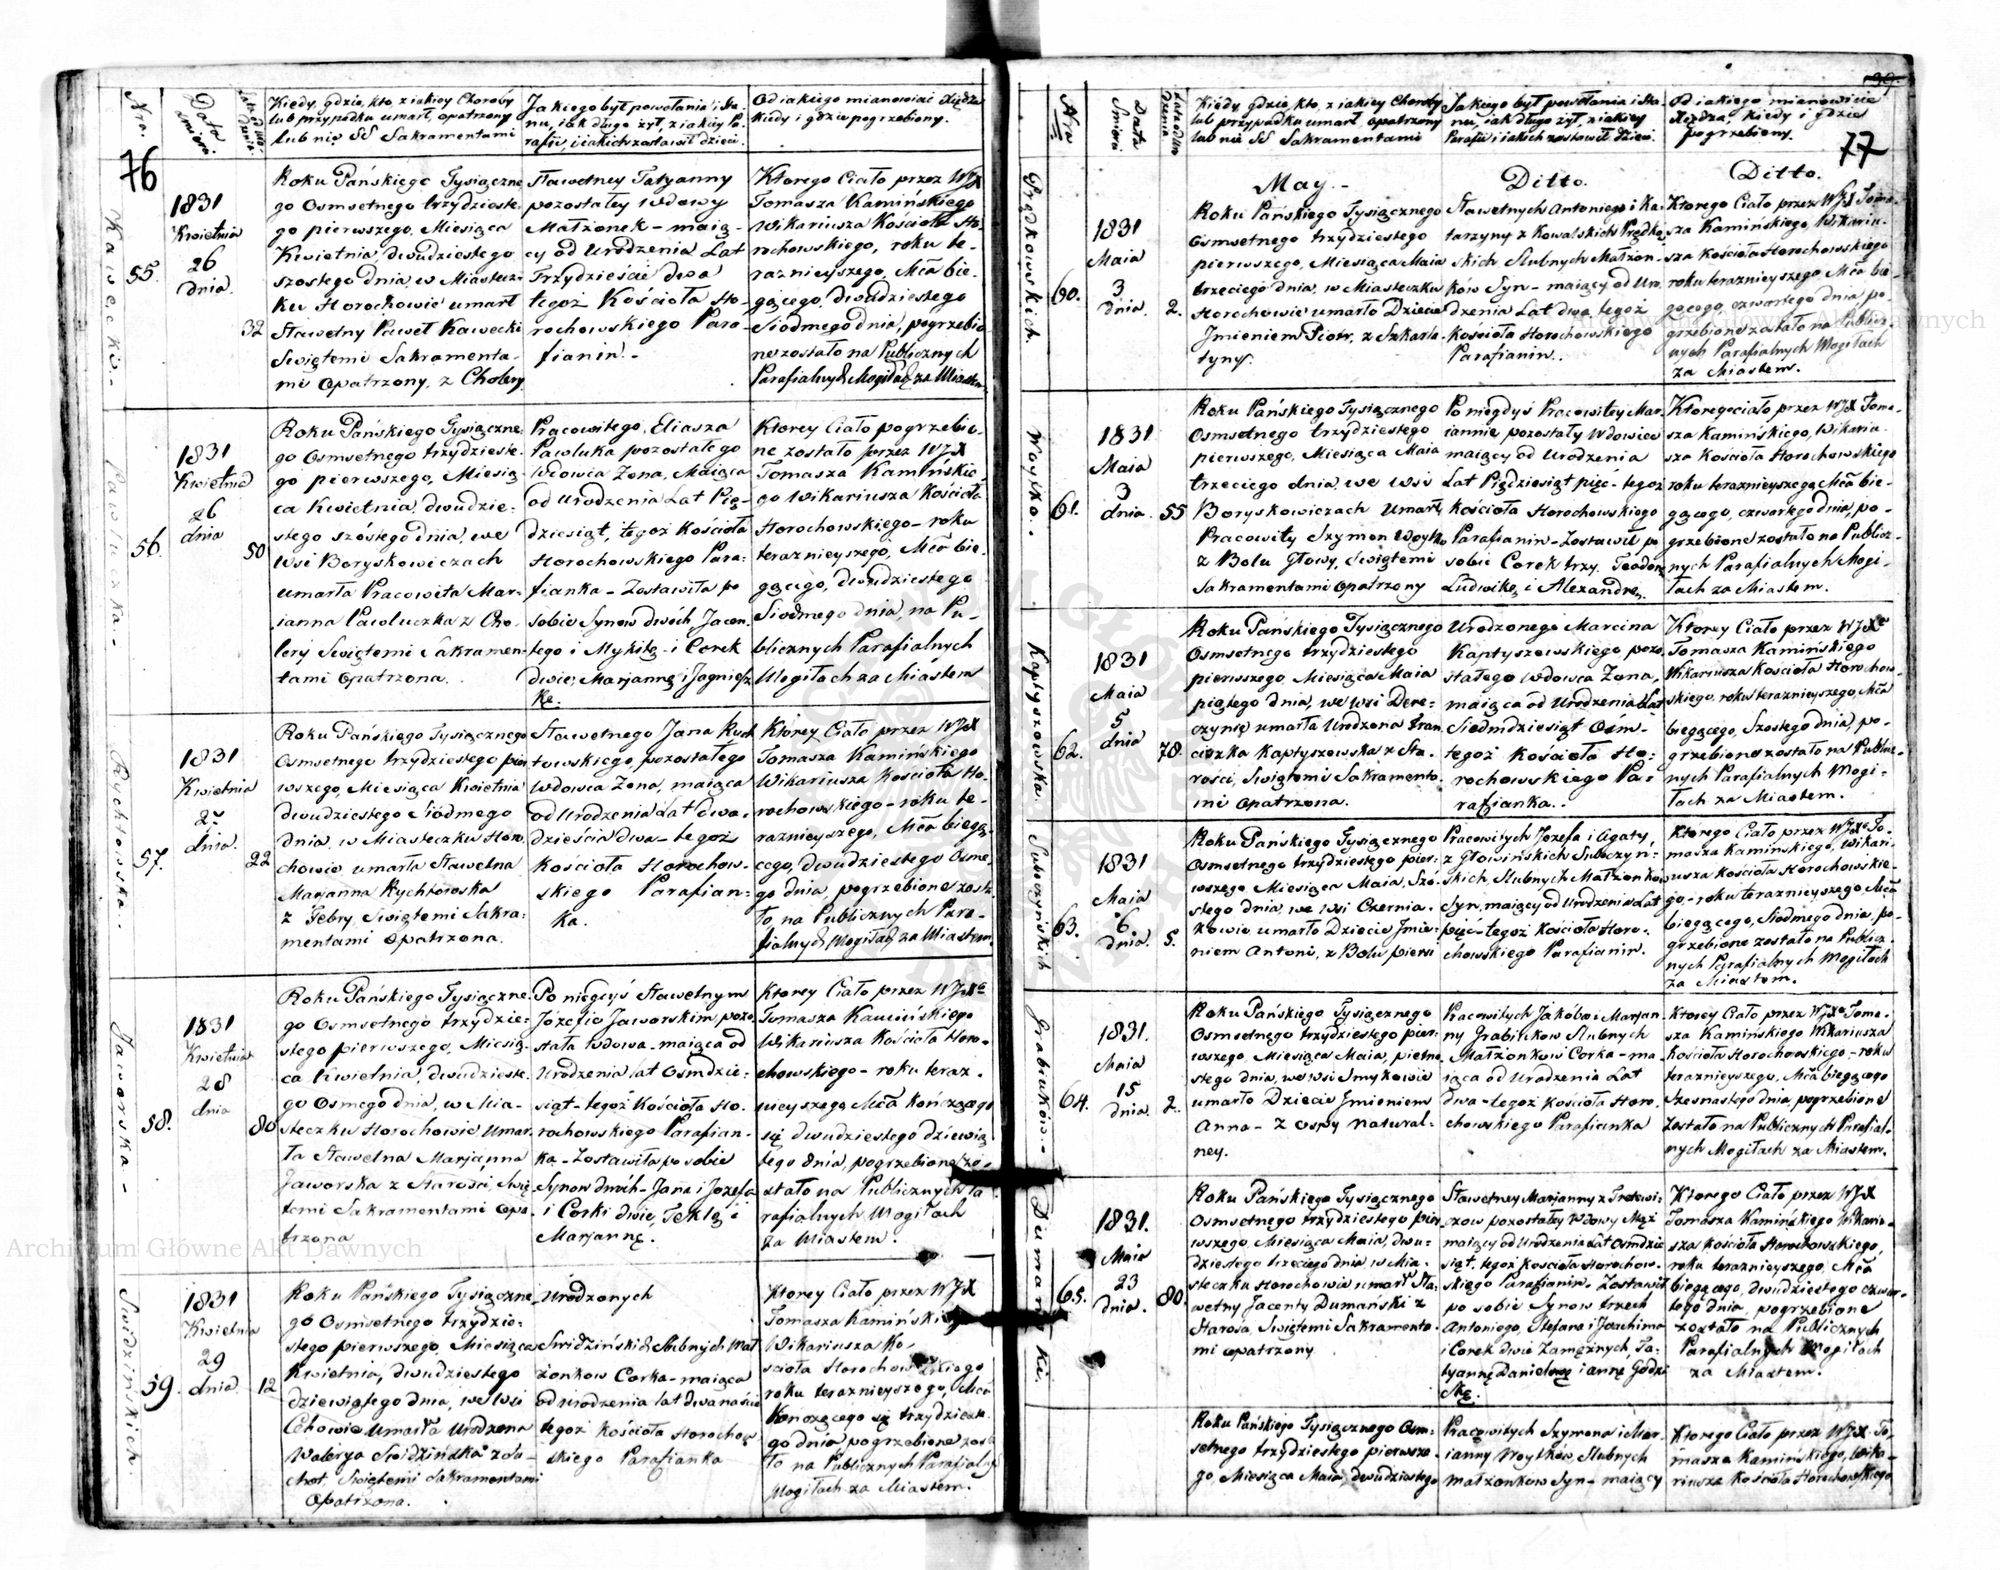 76
Nro.
Data Śmierci
Kiedy, gdzie, kto, z jakiey Choroby
lub przypadku umarł, opatrzony
lub nie SS Sakramentami
Jakiego był powołania i sta-
nu, iak długo żył, z jakiey Pa-
rafii, i iakich zostawił dzieci.
Od iakiego mianowicie Xiędza
kiedy i gdzie pogrzebiony.
Kawecki.
55.
1831
Kwietnia
26
dnia.
32
Roku Pańskiego Tysiączne
go Osmsetnego trzydzieste-
go pierwszego, Miesiąca
Kwietnia, dwudziestego
szostego dnia, w Miastecz-
ku Horochowie umarł
Sławetny Paweł Kawecki
Swiętemi Sakramenta-
mi Opatrzony, z Cholery
Sławetney Tatyanny
pozostałey wdowy
Małżonek - maią-
cy od Urodzenia Lat
Trzydzieści dwa
tegoż Kościoła Ho-
rochowskiego Para-
fianin.-
Ktorego Ciało przez WJX
Tomasza Kamińskiego
Wikariusza Kościoła Ho-
rochowskiego, roku te-
raznieyszego, Mca bie-
gącego, dwudziestego
Siodmego dnia, pogrzebio
ne zostało na Publicznych
Parafialnych Mogiłach za Miastem
Pawluczka.-
56.
1831
Kwietnia
26
dnia
50
Roku Pańskiego Tysiączne-
go Osmsetnego trzydzieste-
go pierwszego, Miesią-
ca Kwietnia, dwudzie-
stego szóstego dnia, we
Wsi Boryskowiczach
umarła Pracowita Mar-
ianna Pawluczka z Cho-
lery Swiętemi Sakramen-
tami Opatrzona.
Pracowitego, Eliasza
Pawluka pozostałego
Wdowca Zona, Maiąca
od Urodzenia Lat Pię-
dziesiąt, tegoż Kościoła
Horochowskiego Para-
fianka - Zostawiła po
sobie Synow dwóch, Jacen-
tego i Mykitę - i Corek
dwie, Marjannę i Jagniesz
kę.
Ktorey Ciało pogrzebio-
ne zostało przez WJX
Tomasza Kamińskie-
go Wikariusza Kościoła
Horochowskiego - roku
teraznieyszego, Mca bie-
gącego, dwudziestego
Siodmego dnia, na Pu-
blicznych Parafialnych
Mogiłach za Miastem
Rychtowska.
57.
1831
Kwietnia
27
dnia.
22
Roku Pańskiego Tysiącznego
Osmsetnego trzydziestego pier
wszego, Miesiąca Kwietnia
dwudziestego Siódmego
dnia, w Miasteczku Horo
chowie umarła Sławetna
Marjanna Rychtowska
z Febry, Swiętemi Sakra-
mentami Opatrzona.
Sławetnego Jana Rych
towskiego, pozostałego
Wdowca Zona, maiąca
od Urodzenia Lat dwa-
dzieścia dwa - tegoż
Kościoła Horochow-
skiego Parafian-
ka.
Ktorey Ciało przez WJX
Tomasza Kamińskiego
Wikariusza Kościoła Ho-
rochowskiego - roku te-
raznieyszego, Mca biegą-
cego, dwudziestego Osme
go dnia, pogrzebione zosta
ło, na Publicznych Para-
fialnych Mogiłach za Miastem
Jaworska -
58.
1831
Kwietnia
28
dnia
80
Roku Pańskiego Tysiączne-
go Osmsetnego trzydzie-
stego pierwszego, Miesią-
ca Kwietnia, dwudzieste-
go Osmego dnia, w Mia-
steczku Horochowie Umar-
ła Sławetna Marjanna
Jaworska z Starosci, Swię
temi Sakramentami Opa-
trzona
Po niegdyś Sławetnym
Józefie Jaworskim, pozo
stała Wdowa - maiąca od
Urodzenia lat Osmdzie-
siąt - tegoż Kościoła Ho-
rochowskiego Parafian-
ka - Zostawiła po sobie
Synow dwóch - Jana i Jozefa
i Corki dwie, Teklę i
Marjannę.
Ktorey Ciało przez WJXa
Tomasza Kamińskiego
Wikariusza Kościoła Horo-
chowskiego - roku teraz-
nieyszego Mca kończącego
się dwudziestego dziewią
tego dnia, pogrzebione zo-
stało na Publicznych Pa
rafialnych Mogiłach
za Miastem
Swidzinskich
59.
1831
Kwietnia
29
dnia.
12
Roku Pańskiego Tysiączne-
go Osmsetnego trzydzie-
stego pierwszego, Miesiąca
Kwietnia, dwudziestego
dziewiątego dnia, we wsi
Cehowie Umarła Urodzona
Walerya Swidzińska z Su-
chot, Swiętemi Sakramentami
Opatrzona.
Urodzonych
Swidzińskich Slubnych Mał
żonkow Corka - maiąca
od urodzenia lat dwanaście
tegoż Kościoła Horochow
skiego Parafianka
Ktorey Ciało przez WJX
Tomasza Kamińskiego
Wikariusza Ko-
ścioła Horochowskiego
roku teraznieyszego, Mca
Konczącego się trzydzieste-
go dnia pogrzebione zosta
ło na Publicznych Parafialnych
Mogiłach za Miastem.
77
Nro
Data Śmierci
Kiedy, gdzie, kto, z jakiey Choroby
lub przypadku umarł, opatrzony
lub nie SS Sakramentami
Jakiego był powołania i sta-
nu, jak długo żył, z iakiey
Parafii i iakich zostawił dzieci.
Od iakiego mianowicie
Xiędza, kiedy i gdzie
pogrzebiony.
May.-
Ditto.
Ditto.
Prądkowskich.
60.
1831
Maia
3
dnia.
2.
Roku Pańskiego Tysiącznego
Osmsetnego trzydziestego
pierwszego, Miesiąca Maia
trzeciego dnia, w Miasteczku
Horochowie umarło Dziecie
Jmieniem Piotr, z Szkarla-
tyny.
Sławetnych Antoniego i Ka-
tarzyny z Kowalskich Prądkow
skich Slubnych Małżon-
kow Syn - maiący od Uro
dzenia Lat dwa, tegoż
Kościoła Horochowskiego
Parafianin.
Ktorego Ciało przez WJX Toma-
sza Kamińskiego, Wikariu-
sza Kościoła Horochowskiego
roku teraznieyszego Mca bie-
gącego, czwartego dnia po-
grzebione zostało na Publicz-
nych Parafialnych Mogiłach
za Miastem.
Woytko.
61.
1831
Maia
3
dnia.
55
Roku Pańskiego Tysiącznego
Osmsetnego trzydziestego
pierwszego, Miesiąca Maia
trzeciego dnia, we Wsi
Boryskowiczach Umarł,
Pracowity Szymon Woytko
z Bolu Głowy, Swiętemi
Sakramentami Opatrzony
Po niegdyś Pracowitey Mar-
iannie pozostały Wdowiec
maiący od Urodzenia
Lat Pięدziesiąt pięć - tegoż
Kościoła Horochowskiego
Parafianin - Zostawił po
sobie Corek trzy, Teodorę
Ludwikę, i Alexandrę.
Ktorego ciało przez WJX Toma-
sza Kamińskiego, Wikaria-
sza Kościoła Horochowskiego
roku teraznieyszego Mca bie-
gącego, czwartego dnia, po-
grzebione zostało na Publicz-
nych Parafialnych Mogi-
łach za Miastem.
Kaptyszowska.
62.
1831
Maia
5
dnia
78.
Roku Pańskiego Tysiącznego
Osmsetnego trzydziestego
pierwszego, Miesiąca Maia
piątego dnia, we wsi Dere-
czynie umarła Urodzona Fran
ciszka Kaptyszowska z Sta-
rości, Swiętemi Sakramenta-
mi Opatrzona.
Urodzonego Marcina
Kaptyszewskiego pozo-
stałego Wdowca Zona,
maiąca od Urodzenia Lat
Siedmdziesiąt Ośm -
tegoż Kościoła Ho-
rochowskiego Pa-
rafianka.
Ktorey Ciało przez WJXa
Tomasza Kamińskiego
Wikariusza Kościoła Horochow-
skiego, roku teraznieyszego, Mca
biegącego, Szostego dnia, po-
grzebione zostało na Publicz-
nych Parafialnych Mogi-
łach za Miastem.
Suboczyńskich
63.
1831
Maia
6
dnia.
5.
Roku Pańskiego Tysiącznego
Osmsetnego trzydziestego pier-
wszego, Miesiąca Maia, Szó-
stego dnia, we Wsi Czernia-
kowie umarło Dziecie Jmie-
niem Antoni, z Bolu piersi
Pracowitych Jozefa i Agaty,
z Głowińskich Suboczyń-
skich, Slubnych Małżonkow
Syn, maiący od Urodzenia Lat
pięć - tegoż Kościoła Horo-
chowskiego Parafianin.
Ktorego Ciało przez WJXa To-
masza Kamińskiego, Wikari-
usza Kościoła Horochowskie-
go, - roku teraznieyszego Mca
biegącego, Siodmego dnia, po-
grzebione zostało na Publicz-
nych Parafialnych Mogiłach
za Miastem.
Grabiukow.-
64.
1831.
Maia
15
dnia.
2.
Roku Pańskiego Tysiącznego
Osmsetnego trzydziestego pier-
wszego, Miesiąca Maia, pietna-
stego dnia, we wsi Smykowie
umarło Dziecie Jmieniem
Anna - z ospy natural-
ney.
Pracowitych Jakóba i Marjan-
ny Grabiukow Slubnych
Małżonkow Corka - ma-
iąca od Urodzenia Lat
dwa - tegoż Kościoła Horo-
chowskiego Parafianka
Ktorey Ciało przez WJXa Toma-
sza Kamińskiego Wikariusza
Kościoła Horochowskiego - roku
teraznieyszego, Mca biegącego
Szesnastego dnia, pogrzebione
Zostało na Publicznych Parafial-
nych Mogiłach za Miastem.
Dumański.
65.
1831.
Maia
23
dnia.
80.
Roku Pańskiego Tysiącznego
Osmsetnego trzydziestego pier
wszego, Miesiąca Maia, dwu-
dziestego trzeciego dnia, w Mia-
steczku Horochowie umarł Sła-
wetny Jacenty Dumański z
Starosci, Swiętemi Sakramenta-
mi opatrzony
Sławetney Marjanny z
pozostałey Wdowy Mąż
maiący od Urodzenia Lat Osmdzie
siąt, tegoż Kościoła Horochow-
skiego Parafianin. Zostawił
po sobie Synow trzech
Antoniego, Stefana i Joachima
i Corek dwie Zamężnych, Ta-
tyannę Danielową i annę Godzi
ską.
Ktorego Ciało przez WJX
Tomasza Kamińskiego Wikaria-
sza Kościoła Horochowskiego,
roku teraznieyszego, Mca
biegącego, dwudziestego czwar-
tego dnia, pogrzebione
zostało na Publicznych
Parafialnych Mogiłach
za Miastem.
Roku Pańskiego Tysiącznego Osm-
setnego trzydziestego pierwsze-
go, Miesiąca Maia, dwudziestego
Pracowitych Szymona i Mar-
ianny Woytków, Slubnych
małżonków Syn - maiący
Ktorego Ciało przez WJX To-
masza Kamińskiego, Wika-
riusza Kościoła Horochowskiego
Archiwum Główne Akt Dawnych
Archiwum Główne Akt Dawnych